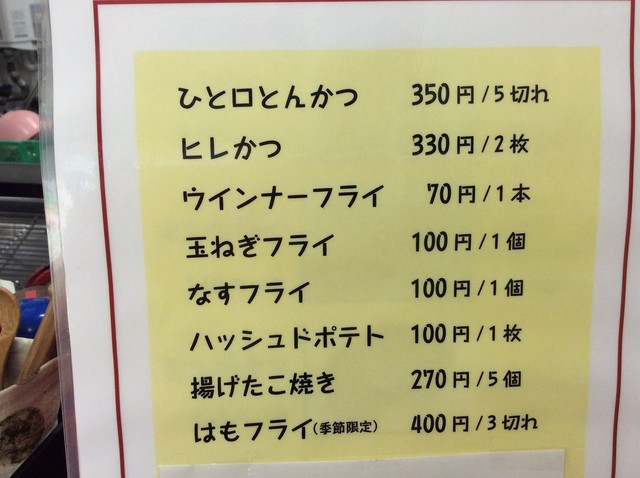 ひと口とんかつ 350円/5切れ
ヒレかつ 330円/2枚
ウインナーフライ 70円/1本
玉ねぎフライ 100円/1個
なすフライ 100円/1個
ハッシュドポテト 100円/1枚
揚げたこ焼き 270円/5個
はもフライ(季節限定) 400円/3切れ